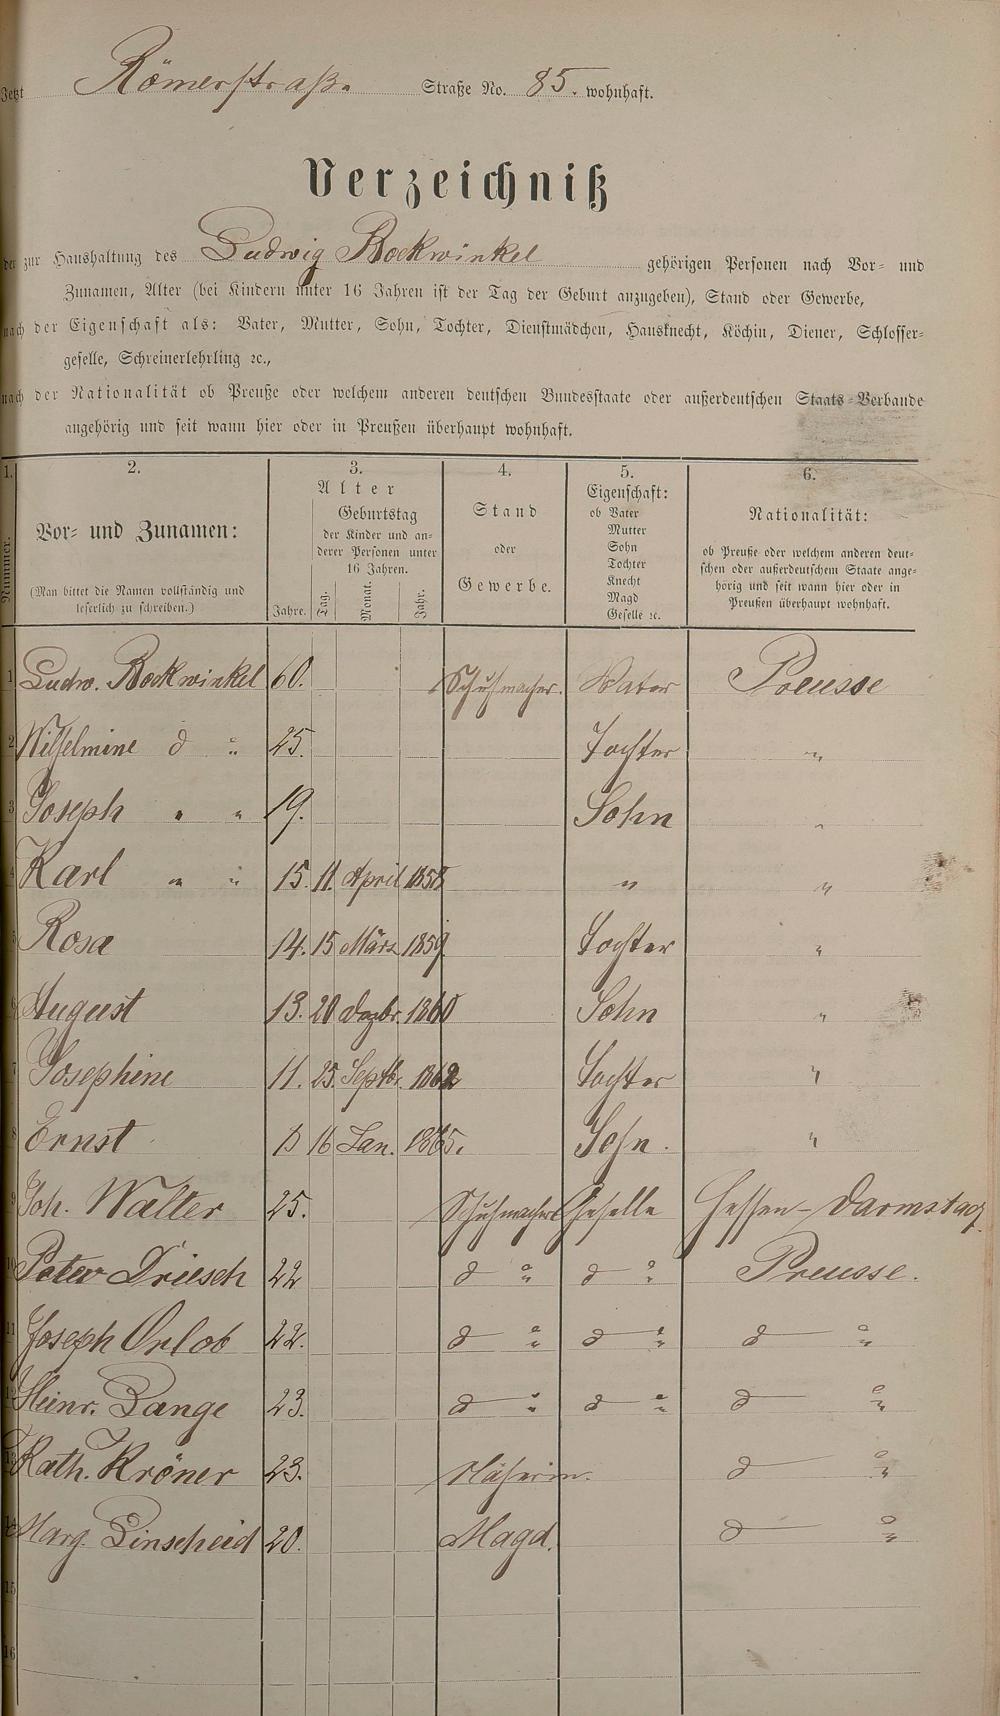 Jetzt Römerstraße Straße No. 85. wohnhaft.
Verzeichniß
der zur Haushaltung des Ludwig Bockwinkel gehörigen Personen nach Vor- und
Zunamen, Alter (bei Kindern unter 16 Jahren ist der Tag der Geburt anzugeben), Stand oder Gewerbe,
nach der Eigenschaft als: Vater, Mutter, Sohn, Tochter, Dienstmädchen, Hausknecht, Köchin, Diener, Schlosser-
geselle, Schreinerlehrling ꝛc.,
nach der Nationalität ob Preuße oder welchem anderen deutschen Bundesstaate oder außerdeutschen Staats-Verbande
angehörig und seit wann hier oder in Preußen überhaupt wohnhaft.
1. 2. 3. 4. 5. 6.
Nummer.
Vor- und Zunamen:
(Man bittet die Namen vollständig und
leserlich zu schreiben.)
Alter
Jahre.
Geburtstag
der Kinder und an-
derer Personen unter
16 Jahren.
Tag. Monat. Jahr.
Stand
oder
Gewerbe.
Eigenschaft:
ob Vater
Mutter
Sohn
Tochter
Knecht
Magd
Geselle ꝛc.
Nationalität:
ob Preuße oder welchem anderen deut-
schen oder außerdeutschem Staate ange-
hörig und seit wann hier oder in
Preußen überhaupt wohnhaft.
1 Ludw. Bockwinkel 60. Schuhmacher. Vater Preusse
2 Wilhelmine d " 25. Tochter "
3 Joseph " " 19. Sohn "
4 Karl " " 15. 11. April 1858 " "
5 Rosa 14. 15 März 1859. Tochter "
6 August 13. 20 Dezbr. 1860 Sohn "
7 Josephine 11. 25. Septbr. 1862 Tochter "
8 Ernst 16 Jan. 1865. Sohn. "
9 Joh. Walter 25. Schuhmacher Geselle Hessen-Darmstadt
10 Peter Driesch 22 d " d " Preusse.
11 Joseph Orlob 22. d " d " d "
12 Heinr. Lange 23. d " d " d "
13 Kath. Kröner 23. Näherin. d "
14 Marg. Linscheid 20. Magd. d "
15
16